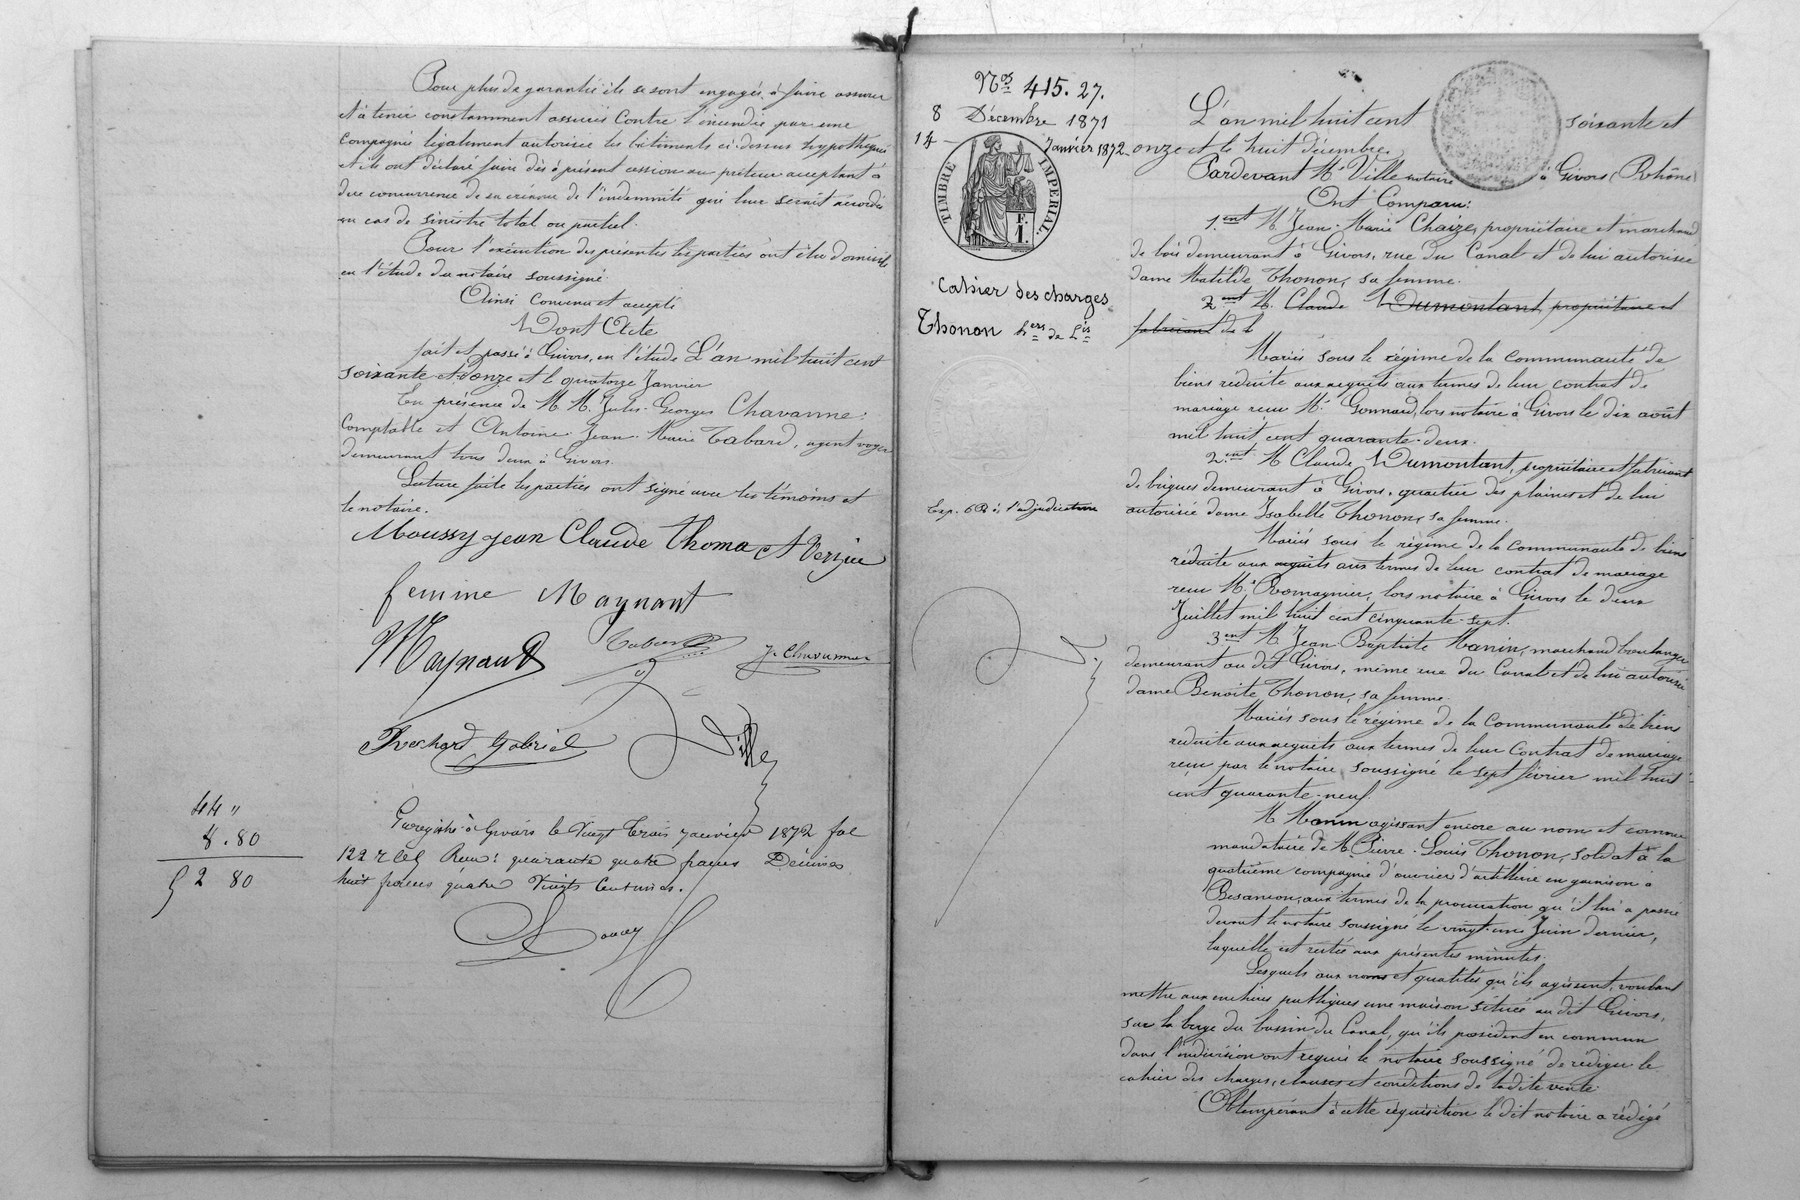 Pour plus de garantie ils se sont engagés à faire assurer
et à tenir constamment assurés Contre l'incendie par une
Compagnie légalement autorisée les bâtiments ci-dessus hypothéqués
et ils ont déclaré faire dès à présent cession au prêteur acceptant à
due concurrence de sa créance de l'indemnité qui leur serait accordée
en cas de sinistre total ou partiel.
Pour l'exécution des présentes les parties ont élu domicile
en l'étude du notaire soussigné.
Ainsi Convenu et accepté
Dont Acte
fait et passé à Givors, en l'étude L'an mil huit cent
soixante et Donze et le quatorze Janvier
En présence de M. M. Jules-Georges Chavanne,
Comptable et Antoine Jean-Marie Tabard, agent voyer
demeurant tous deux à Givors.
Lecture faite les parties ont signé avec les témoins et
le notaire.
Moussy jean Claude Thoma et Verzieu
femme Maynant
Maynaud Tabard J. Chavanne
Gabriel Ville
44 "
8.80
52 80
Enregistré à Givors le Vingt trois janvier 1872 fol
122 r c Reçu: quarante quatre francs Décimes
huit francs quatre Vingts Centimes.
Nos 415. 27.
8 Décembre 1871
14 Janvier 1872
TIMBRE IMPERIAL.
F.
1.
Cahier des charges
Thonon hers de Lis
Exp. 6 R à l'adjudicataire
L'an mil huit cent soixante et
onze et le huit décembre.
Pardevant Me Ville notaire à Givors (Rhône)
Ont Comparu:
1.ent M. Jean-Marie Chaize, propriétaire et marchand
de bois demeurant à Givors, rue du Canal et de lui autorisée
dame Matilde Thonon, sa femme.
2ent M. Claude Dumontant, propriétaire et
fabricant de b
Mariés sous le régime de la Communauté de
biens réduite aux acquêts aux termes de leur contrat de
mariage reçu Me Gonnard, lors notaire à Givors le dix août
mil huit cent quarante-deux.
2.ent M Claude Dumontant, propriétaire et fabricant
de briques demeurant à Givors, quartier des plaines et de lui
autorisée dame Isabelle Thonon, sa femme.
Mariés sous le régime de la Communauté de biens
réduite aux acquêts aux termes de leur contrat de mariage
reçu Me Romagnier, lors notaire à Givors le deux
Juillet mil huit cent cinquante-sept.
3ent M. Jean Baptiste Manin, marchand boulanger
demeurant au dit Givors, même rue du Canal et de lui autorisée
dame Benoite Thonon, sa femme.
Mariés sous le régime de la Communauté de biens
réduite aux acquêts aux termes de leur Contrat de mariage
reçu par le notaire soussigné le sept février mil huit
cent quarante-neuf.
M Manin agissant encore au nom et comme
mandataire de M. Pierre-Louis Thonon, soldat à la
quatrième compagnie d'ouvriers d'artillerie en garnison à
Besançon, aux termes de la procuration qu'il lui a passée
devant le notaire soussigné le vingt-un Juin dernier,
laquelle est restée aux présentes minutes.
Lesquels aux noms et qualités qu'ils agissent, voulant
mettre aux enchères publiques une maison située au dit Givors,
sur la berge du bassin du Canal, qu'ils possèdent en commun
dans l'indivision ont requis le notaire soussigné de rédiger le
cahier des charges, clauses et conditions de ladite vente.
Obtempérant à cette réquisition le dit notaire a rédigé